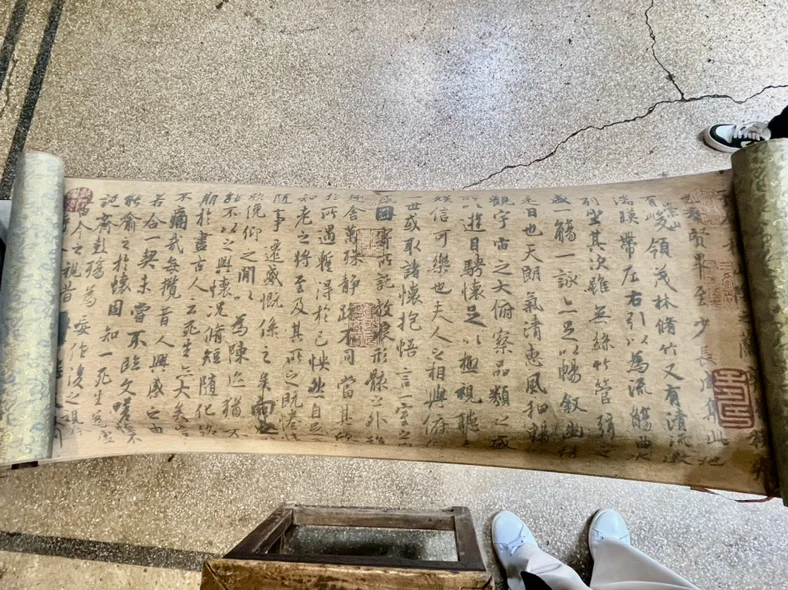 羣賢畢至少長咸集此地
有崇山峻領茂林脩竹又有清流激
湍暎帶左右引以為流觴曲水
列坐其次雖無絲竹管弦之
盛一觴一詠亦足以暢敘幽情
是日也天朗氣清惠風和暢
觀宇宙之大俯察品類之盛
所以遊目騁懷足以極視聽之
娛信可樂也夫人之相與俯仰
世或取諸懷抱悟言一室之
因寄所託放浪形骸之外雖
舍萬殊静躁不同當其欣
於所遇暫得於己快然自足
知老之將至及其所之既惓情
隨事遷感慨係之矣向之
俛仰之閒以為陳迹猶不
能不以之興懷況脩短隨化終
期於盡古人云死生亦大矣豈
不痛哉每攬昔人興感之由
若合一契未嘗不臨文嗟悼
能喻之於懷固知一死生為虛
誕齊彭殤為妄作後之視今
今之視昔